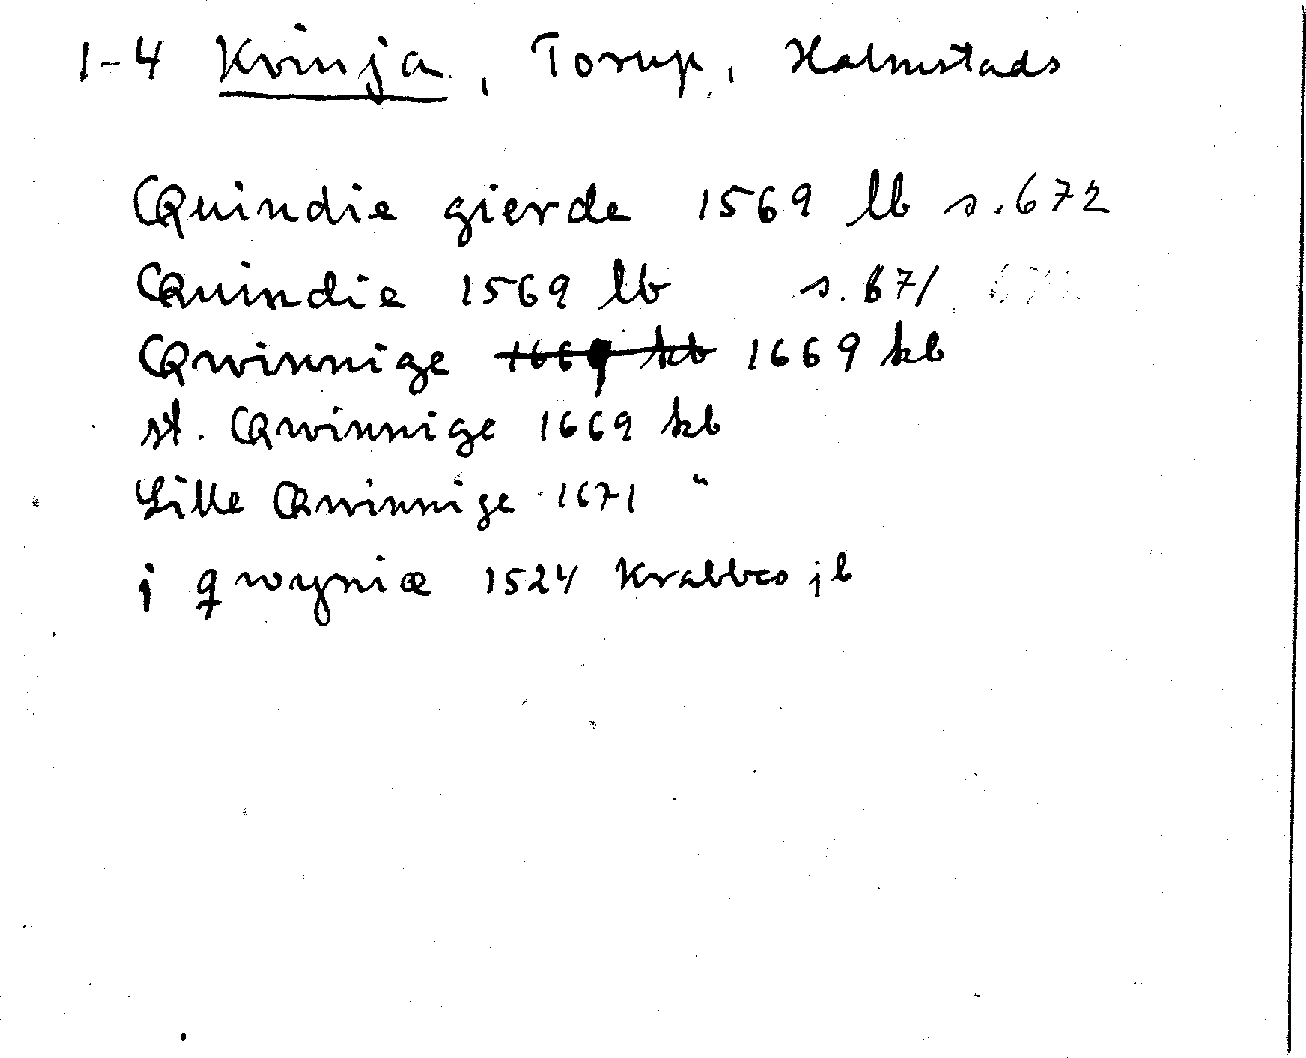 1-4 Kvinja, Torup, Halmstads
Quindie gierde 1569 lb s.672
Quindie 1569 lb s.671
Qwinnige 1669 kb 1669 kb
st. Qwinnige 1669 kb
Lille Qwinnige 1671 "
j qwyniæ 1524 Krabbes jb